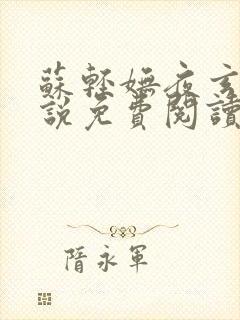 蘇輕嫵夜玄
說免費閱讀
隋永軍